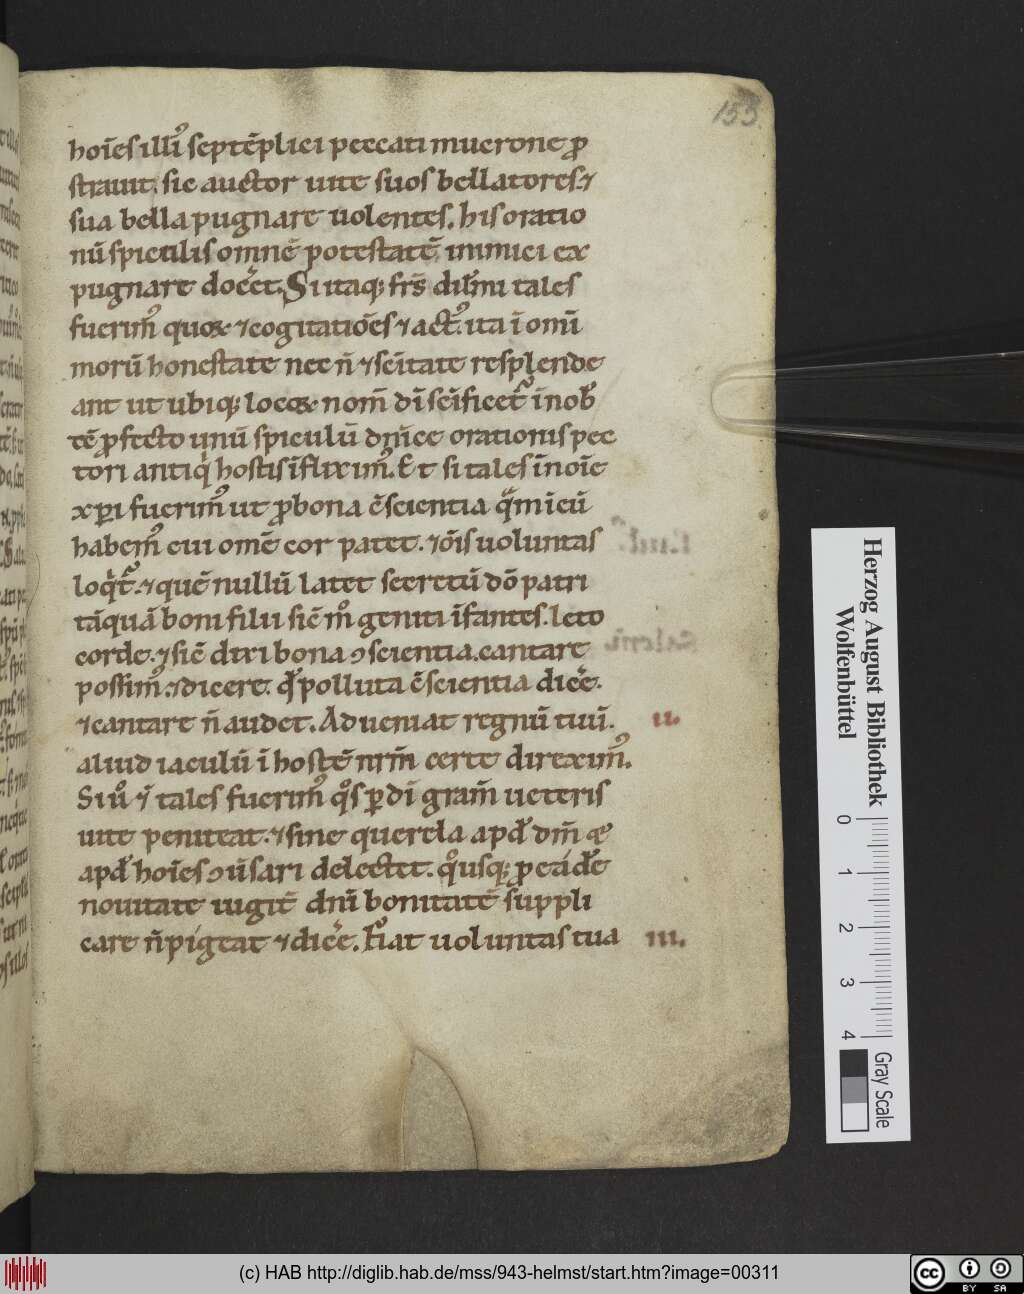 153
hoīes illi᷒ septēplici peccati mucrone ꝓ
strauit. sic auctor uite suos bellatores. ⁊
sua bella pugnare uolentes. his oratio
nū spiculis omnē potestatē inimici ex
pugnare docet. Si itaq; frs̄ dil̄mi tales
fuerim᷒ quoꝝ ⁊ cogitatiōes ⁊ act᷒. ita ī omī
morū honestate nec n̄ ⁊ scītate resplende
ant ut ubiq; locoꝝ nom̄ dī scīficet᷑ ī nob̄
tē ꝓfecto unū spiculū dn̄ice orationis pec
tori antiqͥ hostis īflixim᷒. Et si tales ī noīe
xp̄i fuerim᷒ ut ꝓ bona ↄ̄scientia qͣ̄ m̄ cū
habem᷒ cui om̄e cor patet. ⁊ ōīs uoluntas
loqͥt᷑. ⁊ quē nullū latet secretū dō patri
tāquā boni filii sic̄ mͦ geniti īfantes. leto
corde. ⁊ sic̄ dixi bona ↄscientia. cantare
possim᷒. ⁊ dicere. qd̄ polluta ↄ̄scientia dicēe.
⁊ cantare n̄ audet. Adueniat regnū tuū. II.
aliud iaculū ī hostē nr̄m certe direxim᷒.
Si uͦ ⁊ ī tales fuerim᷒ qͦs ꝑ dī grām ueteris
uite peniteat. ⁊ sine querela apd̄ dm̄ ⁊
apd̄ hoīes ↄūsari delectet. qͦusq; ꝓ eadē
nouitate iugit̄ dn̄i bonitatē suppli
care n̄ pigeat ⁊ dicēe. Fiat uoluntas tua III.
Herzog August Bibliothek
Wolfenbüttel
0 1 2 3 4
Gray Scale
(c) HAB http://diglib.hab.de/mss/943-helmst/start.htm?image=00311
cc BY SA